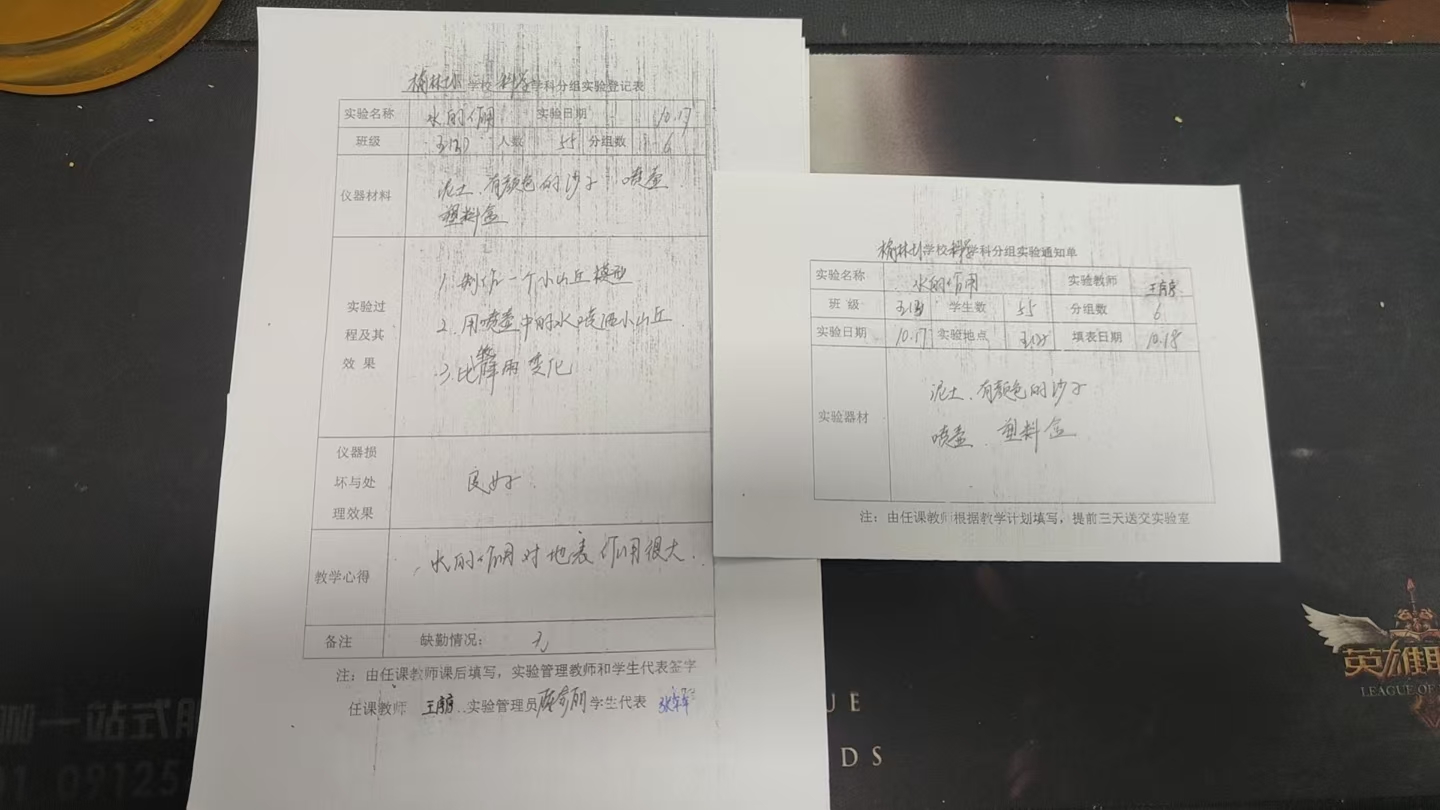 榆林 学校 科学 学科分组实验登记表
实验名称 水的作用 实验日期 10.17
班级 人数 55 分组数 6
仪器材料 泥土、有颜色的沙子 喷壶
塑料盒
实验过程及其效果
1、制作一个小山丘模型
2、用喷壶中的水喷洒小山丘
3、比 降雨 变化
仪器损坏与处理效果 良好
教学心得 水的作用对地表作用很大
备注 缺勤情况: 无
注:由任课教师课后填写,实验管理教师和学生代表签字
任课教师 实验管理员 学生代表
榆林 学校 科学 学科分组实验通知单
实验名称 水的作用 实验教师
班 级 学生数 55 分组数 6
实验日期 10.17 实验地点 填表日期
实验器材 泥土、有颜色的沙子
喷壶、塑料盒
注:由任课教师根据教学计划填写,提前三天送交实验室
英雄联
LEAGUE OF
UE
DS
一站式
0912